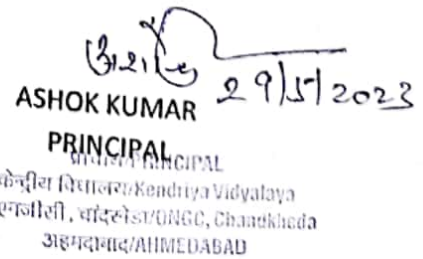 अशोक 29/5/2023
ASHOK KUMAR
PRINCIPAL
प्राचार्य/PRINCIPAL
केन्द्रीय विद्यालय/Kendriya Vidyalaya
एनजीसी, चांदखेडा/ONGC, Chandkheda
अहमदाबाद/AHMEDABAD